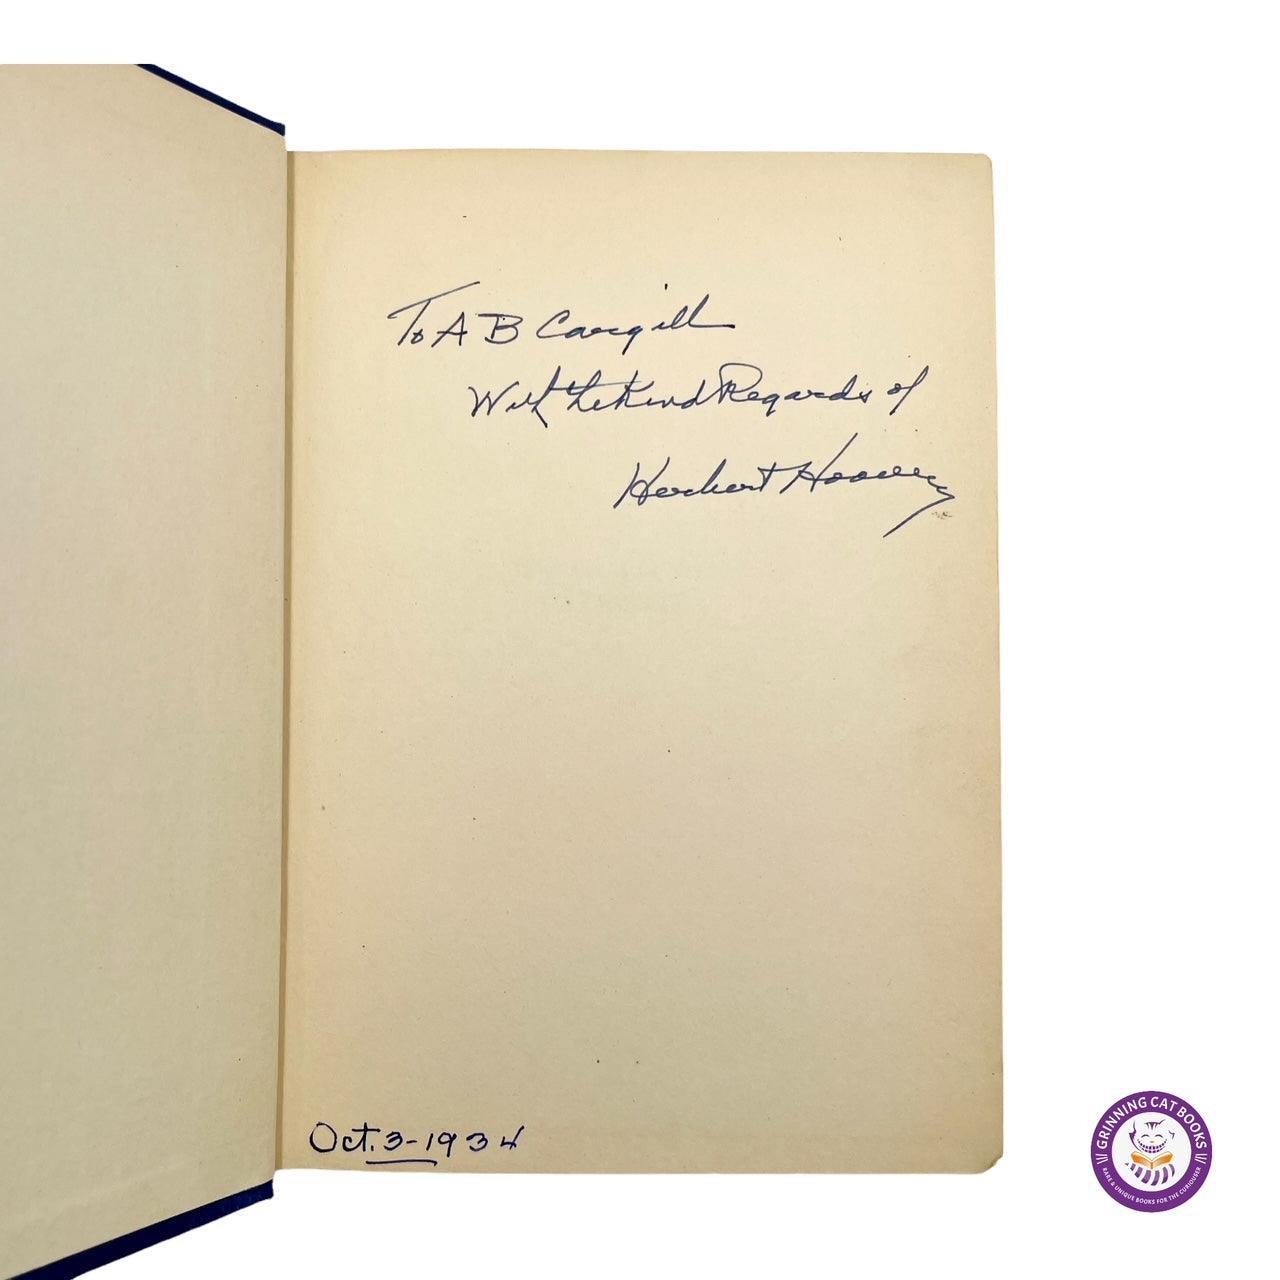 To A B Cargill
With the Kind Regards of
Herbert Hoover
Oct. 3-1934
GRINNING CAT BOOKS
RARE & UNIQUE BOOKS FOR THE CURIOUSER